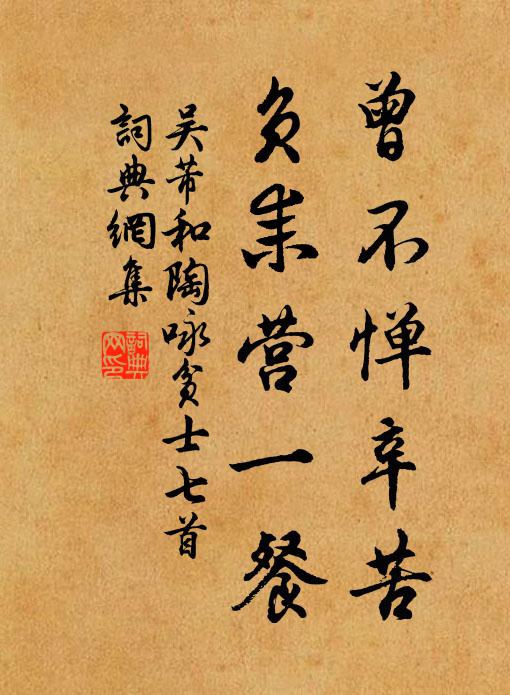 曾不惮辛苦
负耒营一餐
吴芾和陶咏贫士七首
詞典網集
詞典
网印